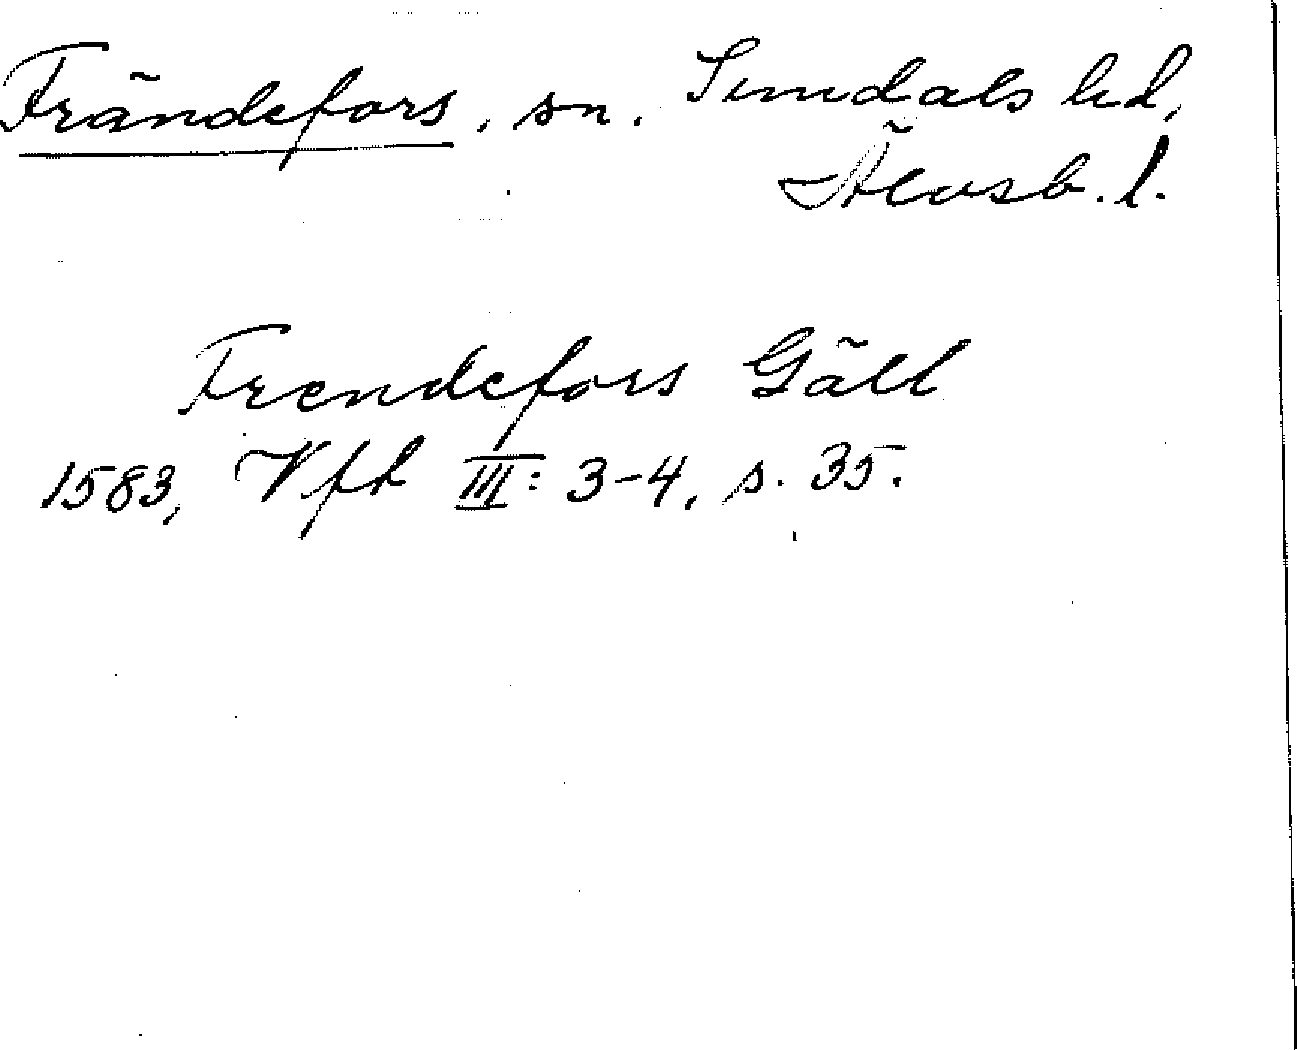 Frändefors, sn. Sundals hd,
Älvsb. l.
Frendefors Gäll
1583, Vfk III: 3-4, s. 35.